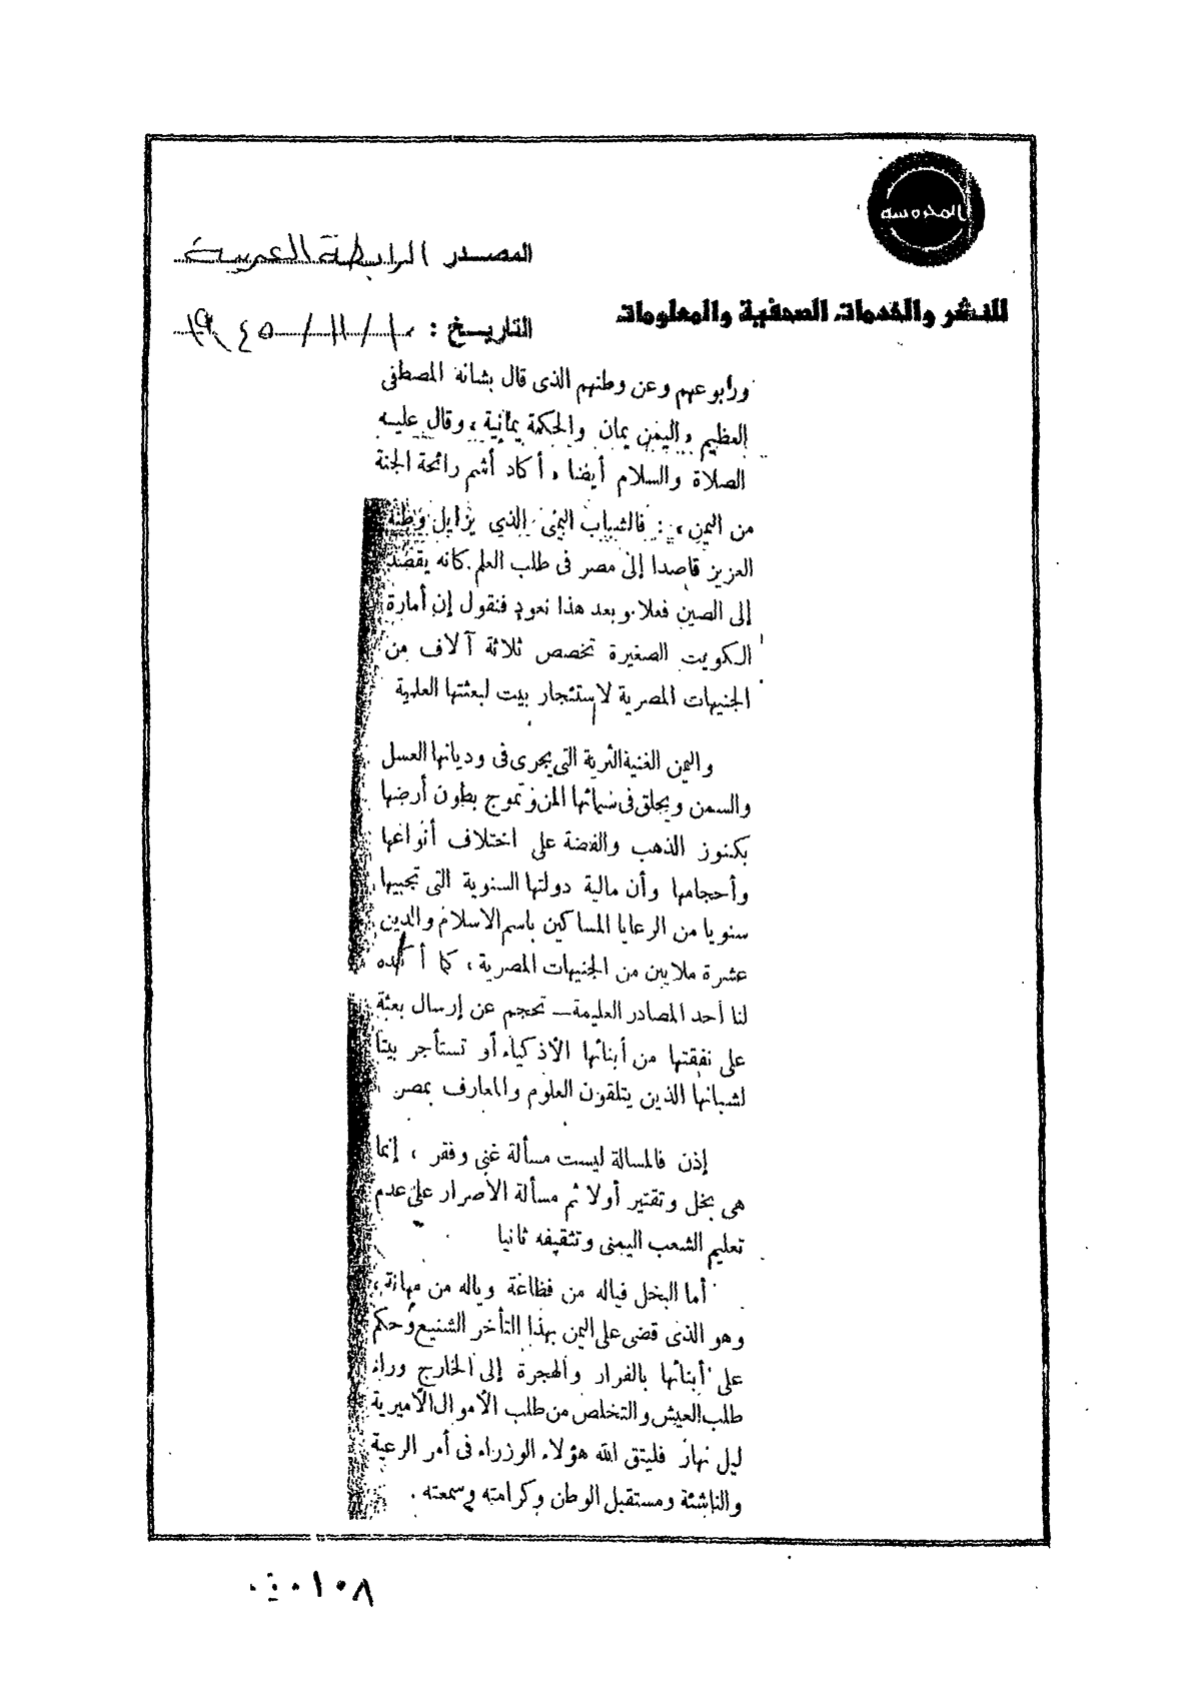 المحروسة
المصدر الرابطة العربية
للنشر والخدمات الصحفية والمعلومات
التاريخ :
ورابوعهم وعن وطنهم الذى قال بشانه المصطفى
العظيم «اليمن يمان والحكمة يمانية» وقال عليه
الصلاة والسلام أيضا «أكاد أشم رائحة الجنة
من اليمن» : فالشباب اليمنى الذي يزايل وطنه
العزيز قاصدا إلى مصر فى طلب العلم كانه يقصد
إلى الصين فعلا . وبعد هذا نعود فنقول إن أمارة
الكويت الصغيرة تخصص ثلاثة آلاف من
الجنيهات المصرية لاستئجار بيت لبعثتها العلمية
واليمن الغنية الثرية التى يجرى فى وديانها العسل
والسمن ويحلق فى سمائها المن وتموج بطون أرضها
بكنوز الذهب والفضة على اختلاف أنواعها
وأحجامها وأن مالية دولتها السنوية التى تجبيها
سنويا من الرعايا المساكين باسم الاسلام والدين
عشرة ملايين من الجنيهات المصرية ، كما أكده
لنا أحد المصادر العليمة — تحجم عن إرسال بعثة
على نفقتها من أبنائها الأذكياء أو تستأجر بيتا
لشبانها الذين يتلقون العلوم والمعارف بمصر
إذن فالمسالة ليست مسألة غنى وفقر ، إنما
هى بخل وتقتير أولا ثم مسألة الأصرار على عدم
تعليم الشعب اليمنى وتثقيفه ثانيا
أما البخل فياله من فظاغة وياله من مهانة ،
وهو الذى قضى على اليمن بهذا التأخر الشنيع وحكم
على أبنائها بالفرار والهجرة إلى الخارج وراء
طلب العيش والتخلص من طلب الأموال الأميرية
ليل نهار فليتق الله هؤلاء الوزراء فى أمر الرعية
والناشئة ومستقبل الوطن وكرامته وسمعته .